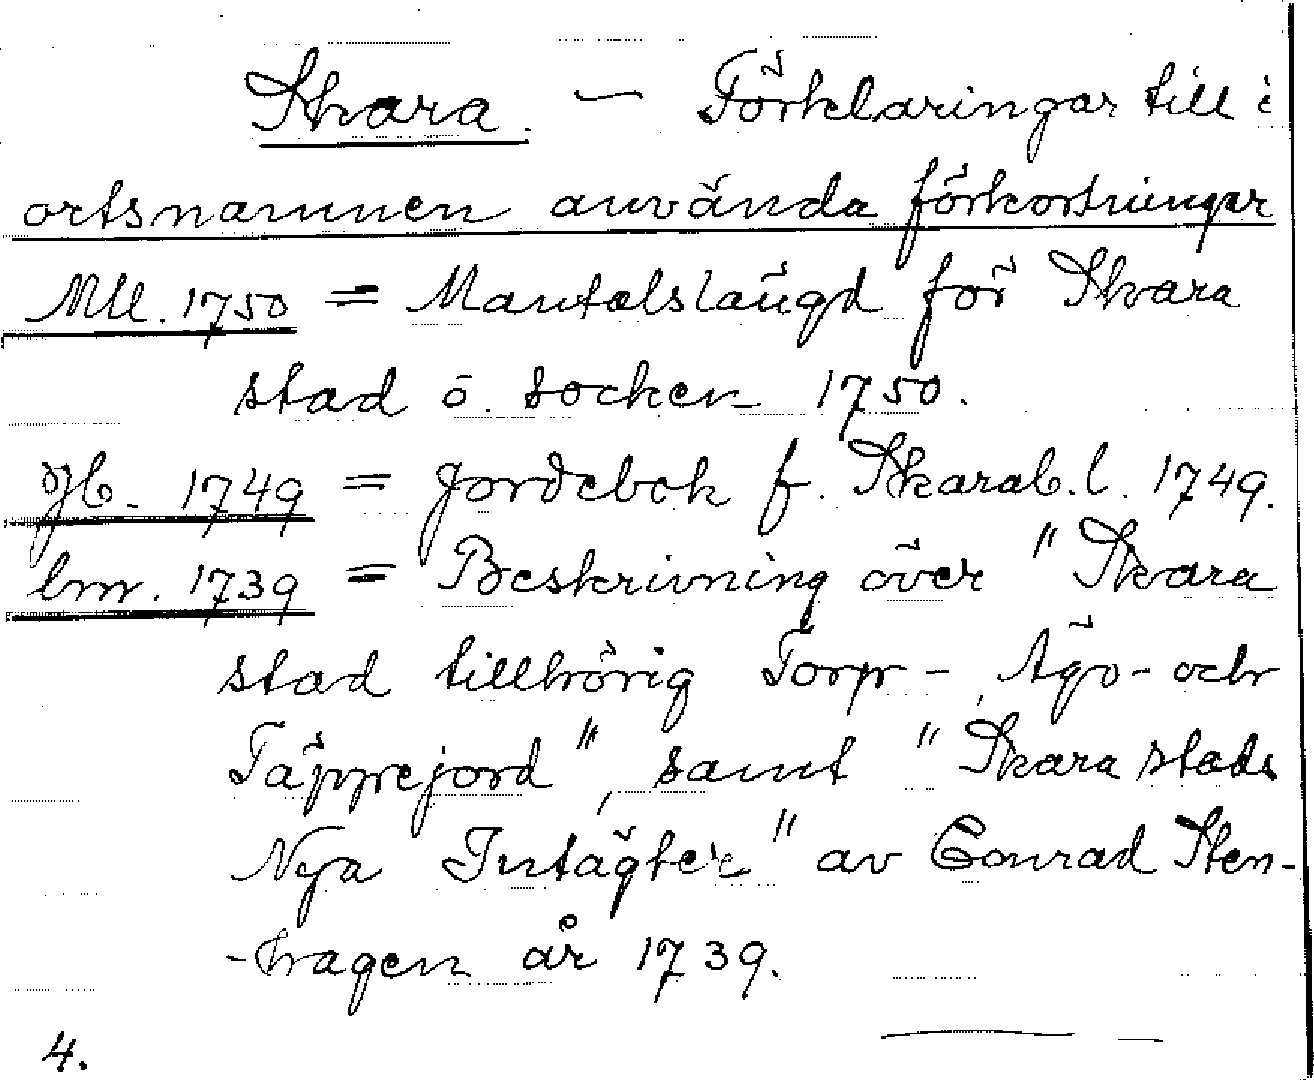 Skara. — Förklaringar till i
ortsnamnen använda förkortningar
Mtl. 1750 = Mantalslängd för Skara
stad o. socken 1750.
Jb. 1749 = Jordebok f. Skarab. l. 1749.
bm. 1739 = Beskrivning över "Skara
stad tillhörig Torp-, Ägo- och
Täppejord", samt "Skara stads
Nya Intägter" av Conrad Sten-
-hagen år 1739.
4.